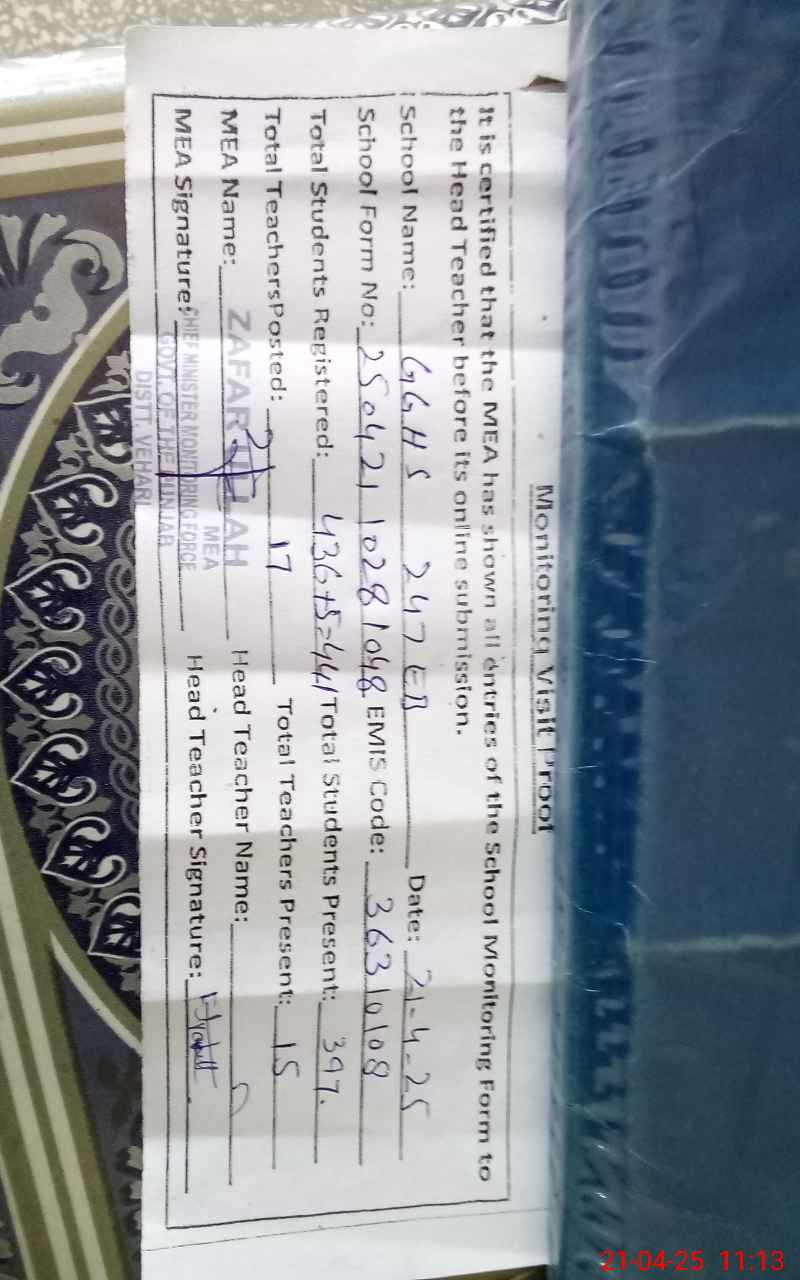 Monitoring Visit Proof
It is certified that the MEA has shown all entries of the School Monitoring Form to
the Head Teacher before its online submission.
School Name: GGHS 247 EB Date: 21-4-25
School Form No: 250421 10281048 EMIS Code: 36310108
Total Students Registered: 436+5=441 Total Students Present: 397.
Total TeachersPosted: 17 Total Teachers Present: 15
MEA Name: ZAFAR ULLAH Head Teacher Name:
MEA
MEA Signature: Head Teacher Signature:
CHIEF MINISTER MONITORING FORCE
GOVT. OF THE PUNJAB
DISTT. VEHARI
21-04-25 11:13